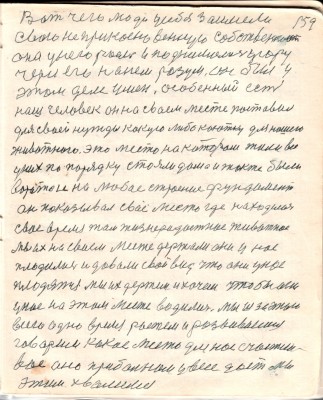 Вот чего люди у себя заимели 159
свою неприкосновенную собственность
она у него росла и поднималась в гору
через его на нем разум, он был у
этом деле умен, особенный сет
наш человек он на своем месте поставил
для своей нужды какую либо конюшу для нашего
животного. Это место на котором жили во
у них по порядку стояли дома и тоже были
ворота на любое строение фундамент
он показывал своё место где находился
свое время там жизнерадостные животные
мы их на своем месте держали они у нас
плодились и давали свой вид что они у нас
плодятся мы их держим и хочем чтобы они
у нас на этом месте водились. Мы и за это
всего одно время растем и развиваемся
говорим какое место для нас счастли-
вое оно прибыльное и весь доход мы
этим хвалимся